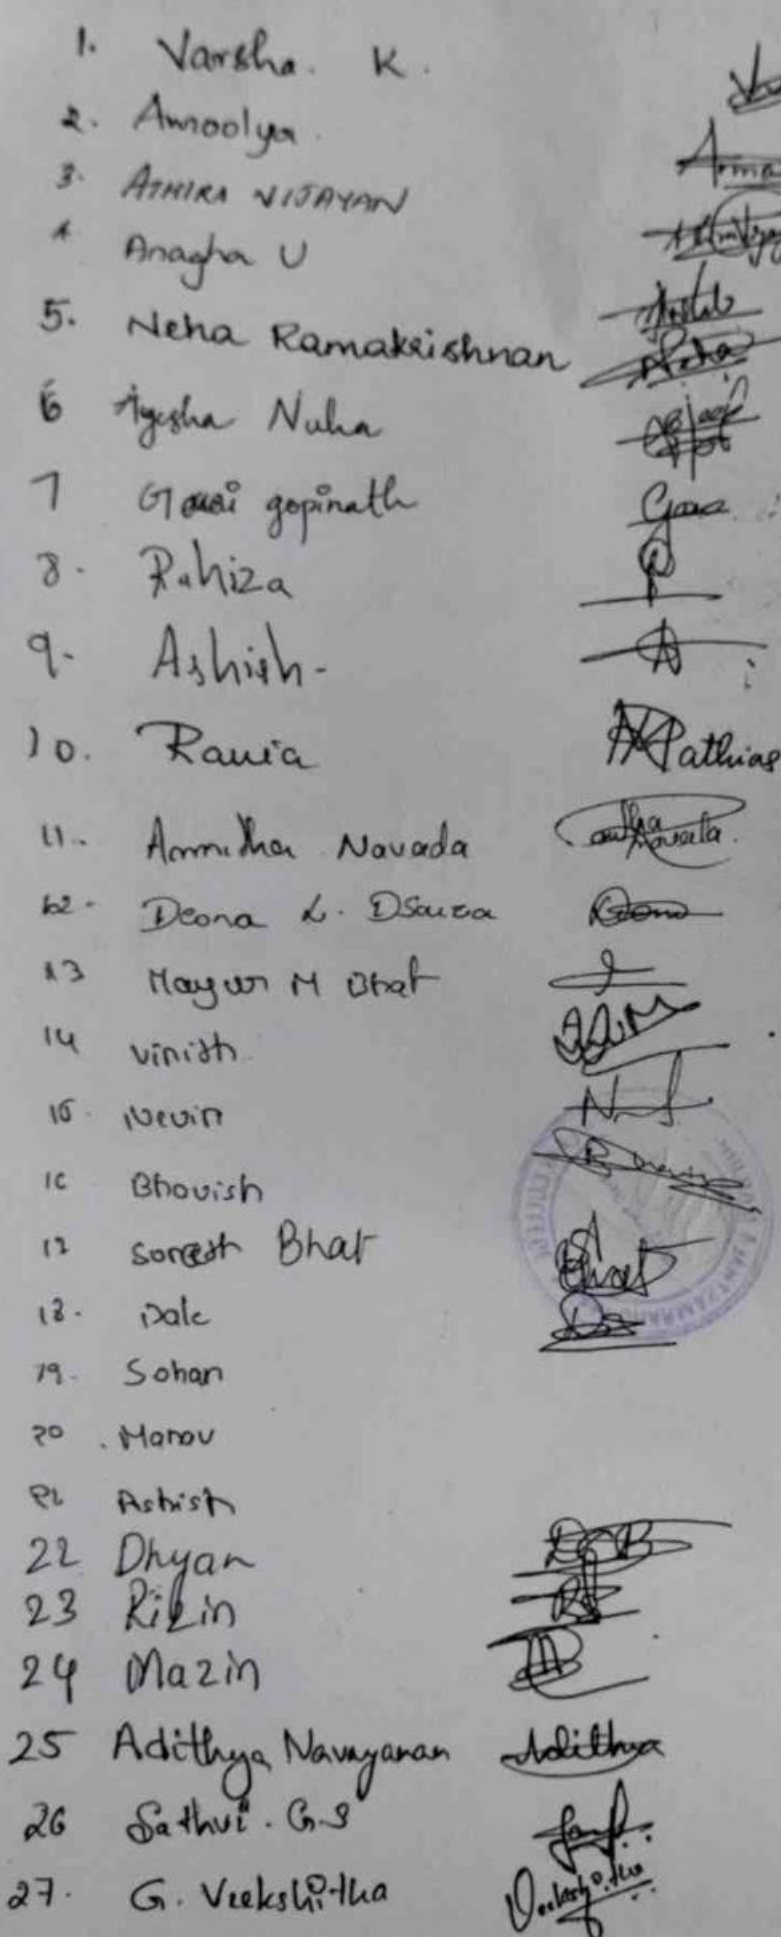 1. Varsha. K.
2. Amoolya.
3. ATHIRA VIJAYAN
4 Anagha U
5. Neha Ramakrishnan Neha
6 Ayesha Nuha
7 Gouri gopinath
8. Rahiza
9. Ashish-
10. Rania Mathias
11. Amritha Navada
12. Deona L. DSouza
13 Mayur M Bhat
14 vinith
15. Nevin
16 Bhavish
17 Bhat Bhat
18. Dale
19. Sohan
20. Manav
21 Ashish
22 Dhyan
23 Rizin
24 Mazin
25 Adithya Narayanan Adithya
26 Sathvi. G.S
27. G. Veekshitha Veekshitha